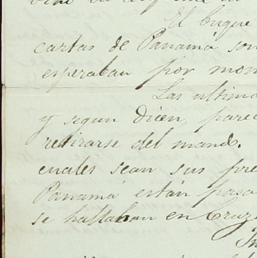 El buque
cartas de Panamá son
esperaban por mom
Las ultima
y segun dicen, pare
retirarse del mando.
cuales sean sus pre
Panamá están pasa
se hallaban en Cruz